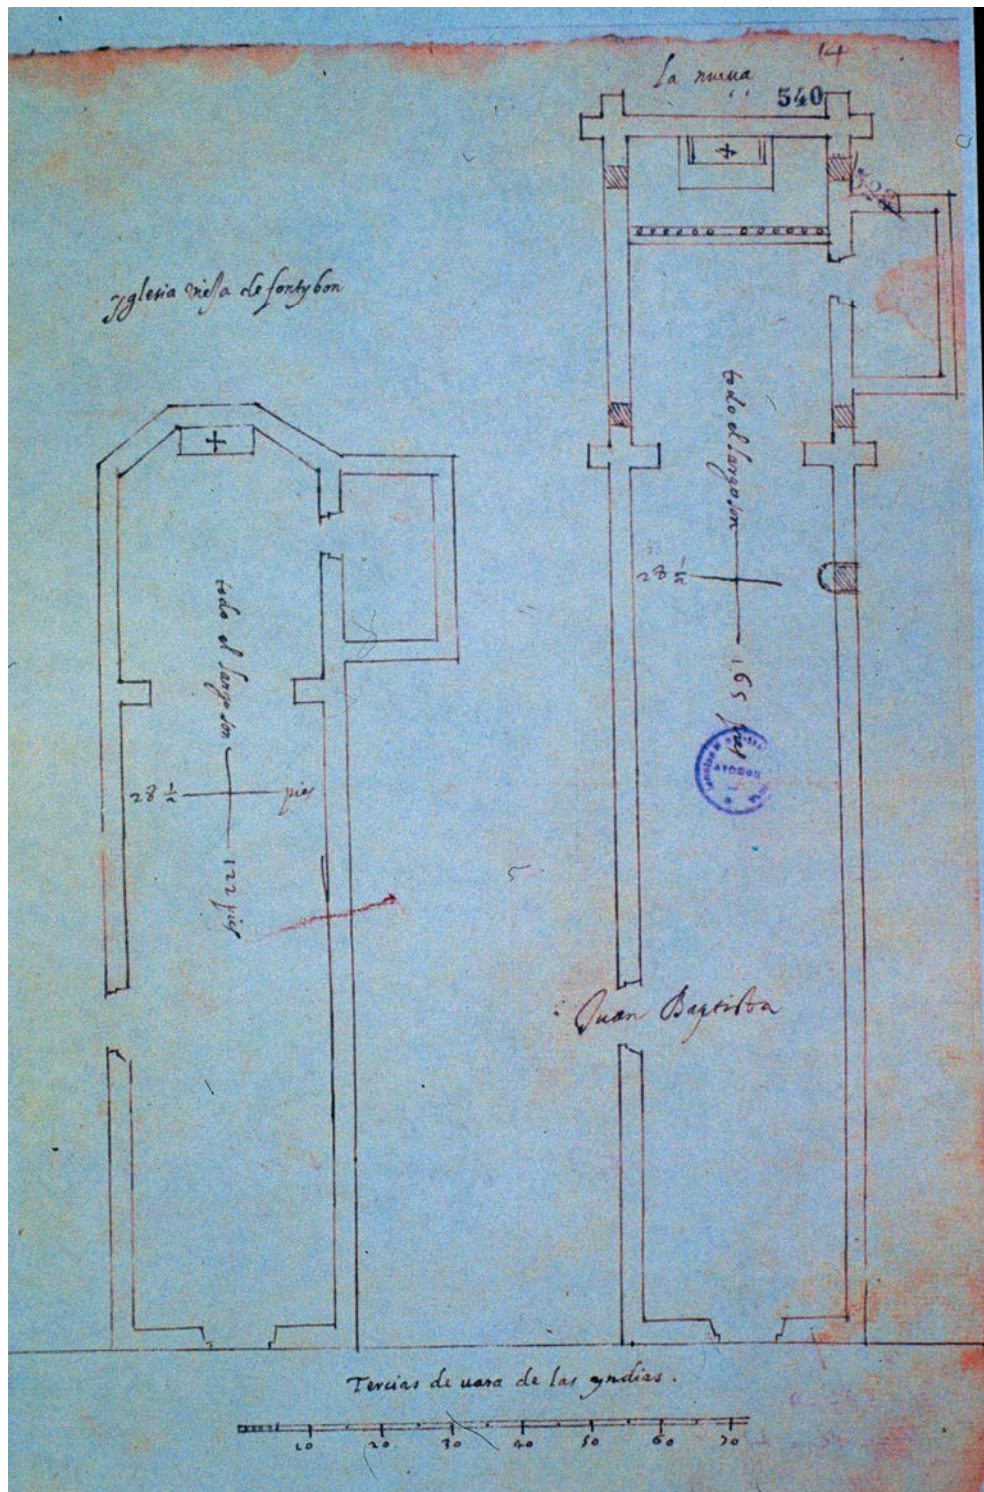 14
la nueua
540
yglesia vieja de fontybon
todo el largo son
28 ½
165 pies
todo el largo son
28 ½ pies
122 pies
Juan Baptista
Tercias de uara de las yndias.
10 20 30 40 50 60 70